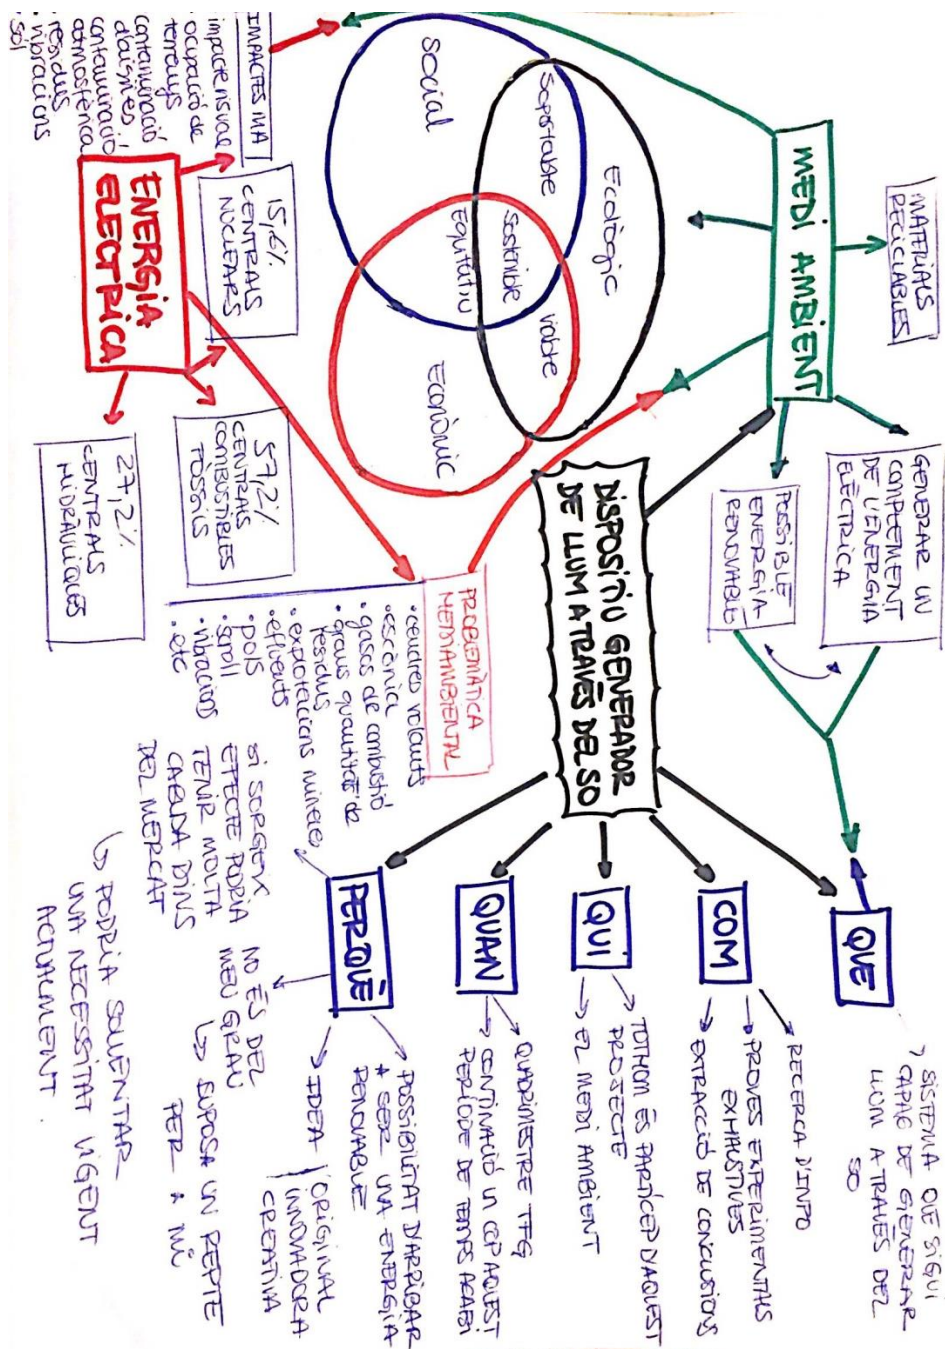 MATERIALS
RECICLABLES
MEDI AMBIENT
GENERAR UN
COMPLEMENT
DE L'ENERGIA
ELÈCTRICA
POSSIBLE
ENERGÍA
RENOVABLE
Ecològic
Soportable
Social
viable
Sostenible
Equitatiu
Econòmic
IMPACTES MA
impacte visual
ocupació de
terrenys
contaminació
d'aigües
contaminació
atmosfèrica
residus
vibracions
sòl
ENERGIA
ELECTRICA
15,6%
CENTRALS
NUCLEARS
57,2%
CENTRALS
COMBUSTIBLES
FÒSSILS
27,2%
CENTRALS
HIDRÀULIQUES
DISPOSITIU GENERADOR
DE LLUM A TRAVÉS DEL SO
PROBLEMÀTICA
MEDIAMBIENTAL
·cendres volants
·escòria
·gasos de combustió
·grans quantitats de
residus
·explotacions mineres
·efluents
·pols
·soroll
·vibracions
·etc
QUE
SISTEMA QUE SIGUI
CAPAÇ DE GENERAR
LLUM A TRAVÉS DEL
SO
COM
RECERCA D'INFO
PROVES EXPERIMENTALS
EXHAUSTIVES
EXTRACCIÓ DE CONCLUSIONS
QUI
TOTHOM ÉS PARTÍCEP D'AQUEST
PROJECTE
EL MEDI AMBIENT
QUAN
QUADRIMESTRE TFG
CONTINUACIÓ UN COP AQUEST
PERÍODE DE TEMPS ACABI
PERQUÈ
POSSIBILITAT D'ARRIBAR
A SER UNA ENERGÍA
RENOVABLE
IDEA
ORIGINAL
INNOVADORA
CREATIVA
NO ÉS DEL
MEU GRAU
SUPOSA UN REPTE
PER A MÍ
SI SORGEIX
EFECTE PODRIA
TENIR MOLTA
CABUDA DINS
DEL MERCAT
PODRÍA SOLVENTAR
UNA NECESSITAT VIGENT
ACTUALMENT.